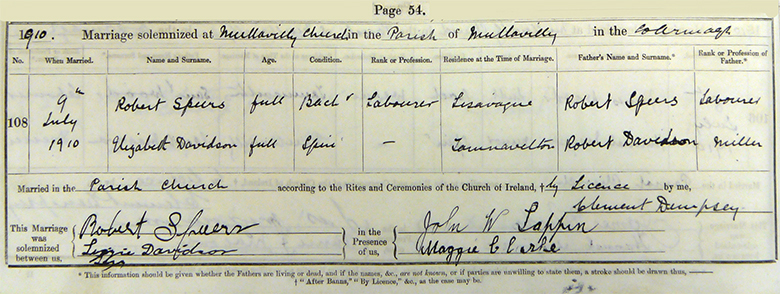 Page 54.
1910. Marriage solemnized at Mullavilly Church in the Parish of Mullavilly in the Co Armagh
No. When Married. Name and Surname. Age. Condition. Rank or Profession. Residence at the Time of Marriage. Father's Name and Surname.* Rank or Profession of Father.*
108 9th July 1910 Robert Speers full Bachr Labourer Lisavague Robert Speers Labourer
Elizabeth Davidson full Spin - Tamnavelton Robert Davidson Miller
Married in the Parish Church according to the Rites and Ceremonies of the Church of Ireland, † by Licence by me,
Clement Dempsey
This Marriage was solemnized between us, Robert Speers in the Presence of us, John W Lappin
Lizzie Davidson Maggie Clarke
* This information should be given whether the Fathers are living or dead, and if the names, &c., are not known, or if parties are unwilling to state them, a stroke should be drawn thus, ——
† "After Banns," "By Licence," &c., as the case may be.